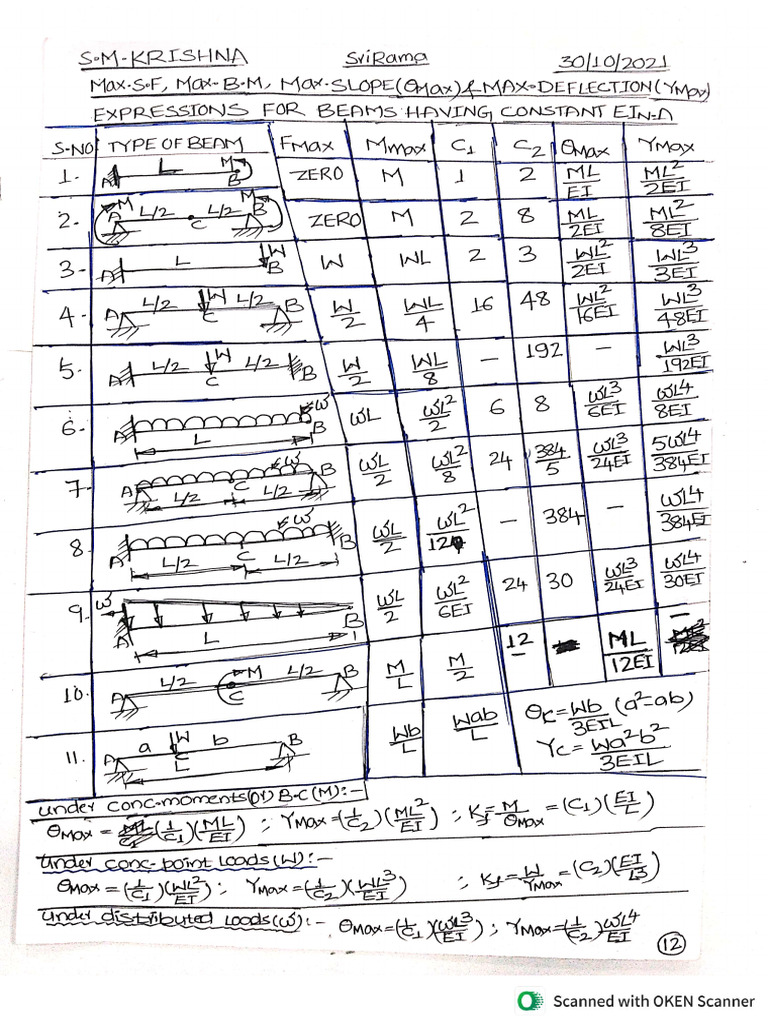 S.M.KRISHNA SriRama 30/10/2021
Max.S.F, Max.B.M, Max.SLOPE(θMax) & MAX.DEFLECTION(YMax)
EXPRESSIONS FOR BEAMS HAVING CONSTANT EIN-A
S.NO TYPE OF BEAM Fmax Mmax C1 C2 θMax YMax
1. A L M B ZERO M 1 2 ML/EI ML²/2EI
2. M A L/2 C L/2 B M ZERO M 2 8 ML/2EI ML²/8EI
3. A L W B W WL 2 3 WL²/2EI WL³/3EI
4. A L/2 W C L/2 B W/2 WL/4 16 48 WL²/16EI WL³/48EI
5. A L/2 W C L/2 B W/2 WL/8 — 192 — WL³/192EI
6. A ω B L ωL ωL²/2 6 8 ωL³/6EI ωL4/8EI
7. A C ω B L/2 L/2 ωL/2 ωL²/8 24 384/5 ωL³/24EI 5ωL4/384EI
8. A ω B L/2 L/2 ωL/2 ωL²/12 — 384 — ωL4/384EI
9. ω A B L ωL/2 ωL²/6EI 24 30 ωL³/24EI ωL4/30EI
10. A L/2 M C L/2 B M/L M/2 12 ML/12EI —
11. A a W C b B L Wb/L Wab/L θK=Wb/3EIL (a²-ab)
YC=Wa²b²/3EIL
under conc.moments(or) B.C(M):-
θMax = (1/C1)(ML/EI) ; YMax=(1/C2)(ML²/EI) ; Kf=M/θMax=(C1)(EI/L)
Under conc.point Loads(W):-
θMax=(1/C1)(WL²/EI) ; YMax=(1/C2)(WL³/EI) ; Kf=W/YMax=(C2)(EI/L3)
Under distributed Loads(ω):- θMax=(1/C1)(ωL3/EI) ; YMax=(1/C2)ωL4/EI
12
Scanned with OKEN Scanner